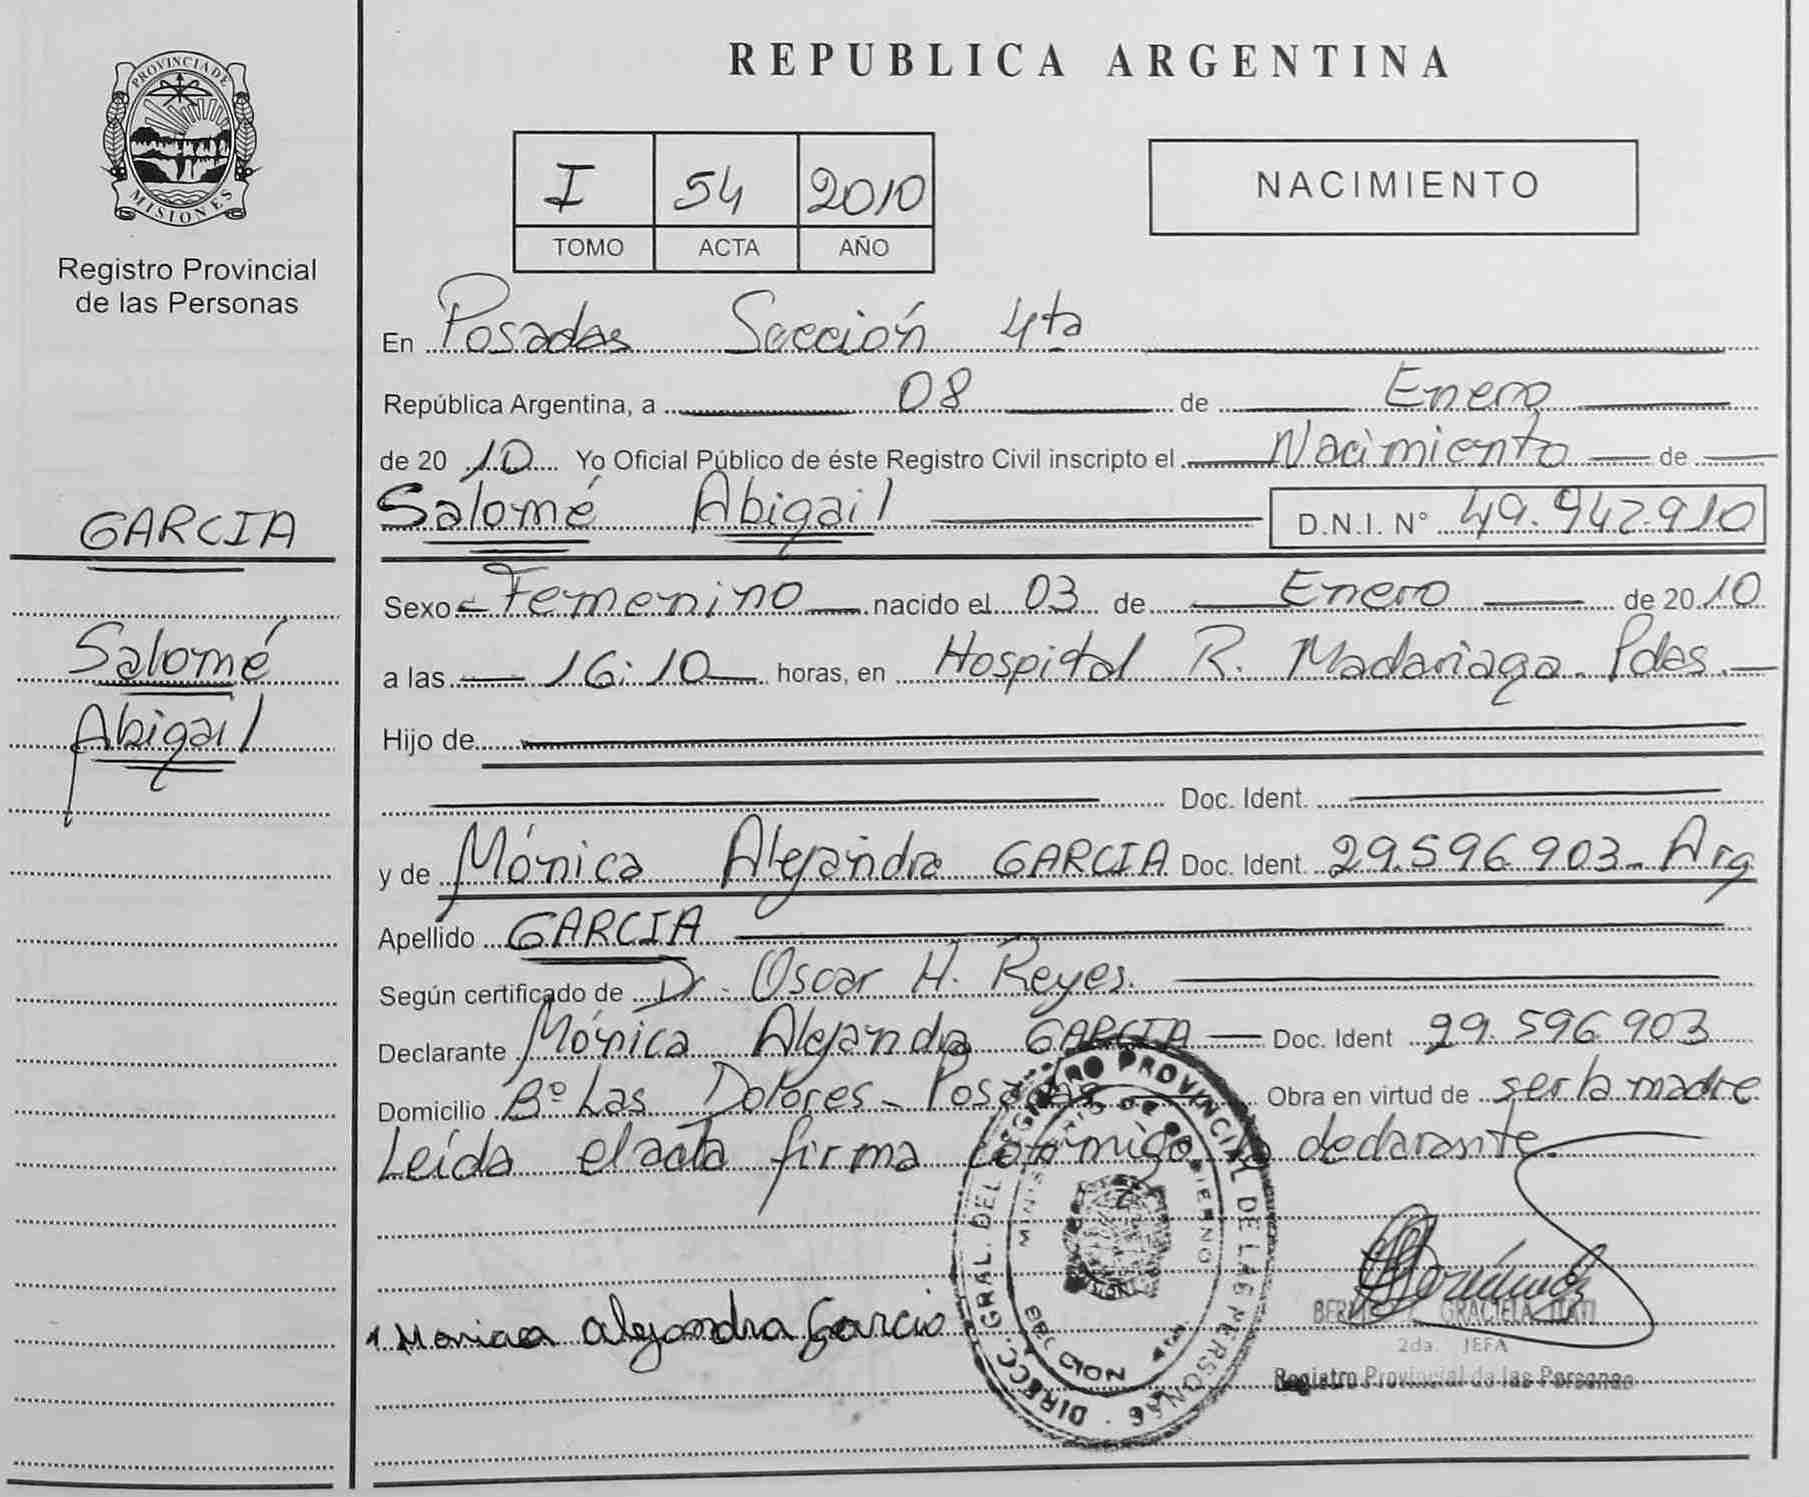 PROVINCIA DE
MISIONES
Registro Provincial
de las Personas
GARCIA
Salomé
Abigail
REPUBLICA ARGENTINA
I 54 2010
TOMO ACTA AÑO
NACIMIENTO
En Posadas Sección 4ta
República Argentina, a 08 de Enero
de 2010 Yo Oficial Público de éste Registro Civil inscripto el Nacimiento de
Salomé Abigail D.N.I. N° 49.942.910
Sexo Femenino nacido el 03 de Enero de 2010
a las 16:10 horas, en Hospital R. Madariaga. Pdas.
Hijo de
Doc. Ident.
y de Mónica Alejandra GARCIA Doc. Ident. 29.596.903. Arg
Apellido GARCIA
Según certificado de Dr. Oscar H. Reyes.
Declarante Mónica Alejandra GARCIA Doc. Ident 29.596.903
Domicilio Bº Las Dolores - Posadas Obra en virtud de ser la madre
Leída el acta firma conmigo la declarante.
Monica alejandra Garcia
DIRECC. GRAL. DEL REGISTRO PROVINCIAL DE LAS PERSONAS
GRACIELA ITATI
2da. JEFA
Registro Provincial de las Personas